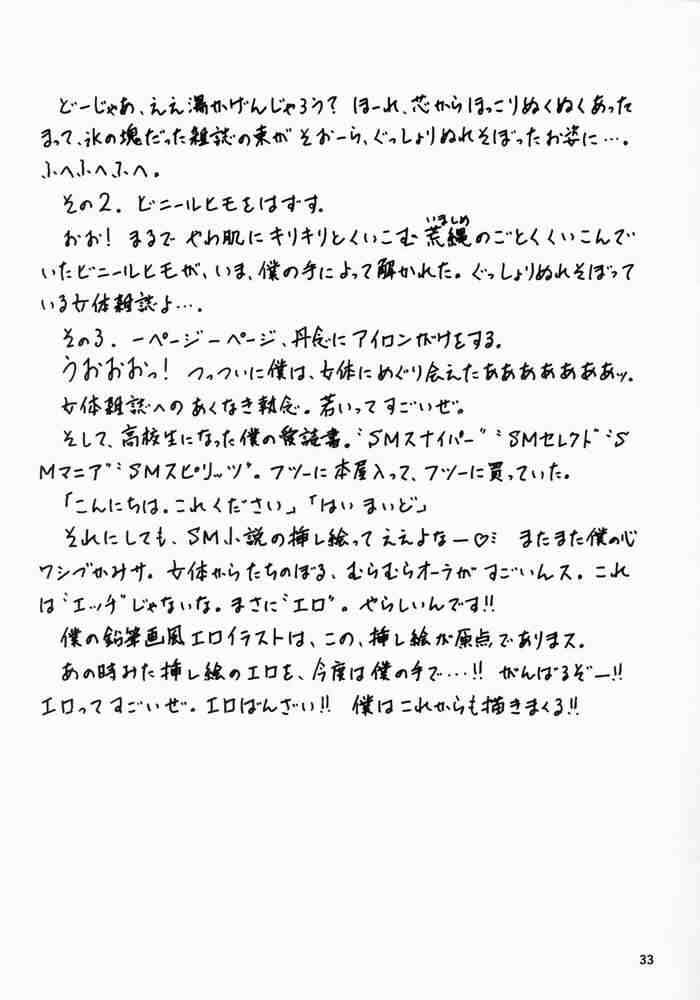 どーじゃあ、ええ湯かげんじゃろう? ほーれ、芯からほっこりぬくぬくあった
まって、氷の塊だった雑誌の束が そおーら、ぐっしょりぬれそぼったお姿に…。
ふへふへふへ。
その2. ビニールヒモをはずす。
おお! まるで やわ肌にキリキリとくいこむ 荒縄のごとくくいこんで
いましめ
いたビニールヒモが、いま、僕の手によって解かれた。ぐっしょりぬれそぼって
いる女体雑誌よ…。
その3. 一ページ一ページ、丹念にアイロンがけをする。
うおおおっ! つっついに僕は、女体にめぐり会えたああああああァッ。
女体雑誌へのあくなき執念。若いってすごいぜ。
そして、高校生になった僕の愛読書。"SMスナイパー" "SMセレクト" "S
Mマニア" "SMスピリッツ"。フツーに本屋入って、フツーに買っていた。
「こんにちは。これください」「はい まいど」
それにしても、SM小説の挿し絵って ええよなー♡ミ またまた僕の心
ワシづかみサ。女体からたちのぼる、むらむらオーラがすごいんス。これ
は"エッチ"じゃないな。まさに"エロ"。やらしいんです!!
僕の鉛筆画風エロイラストは、この、挿し絵が原点でありまス。
あの時みた挿し絵のエロを、今度は僕の手で…!! がんばるぞー!!
エロってすごいぜ。エロばんざい!! 僕はこれからも描きまくる!!
33